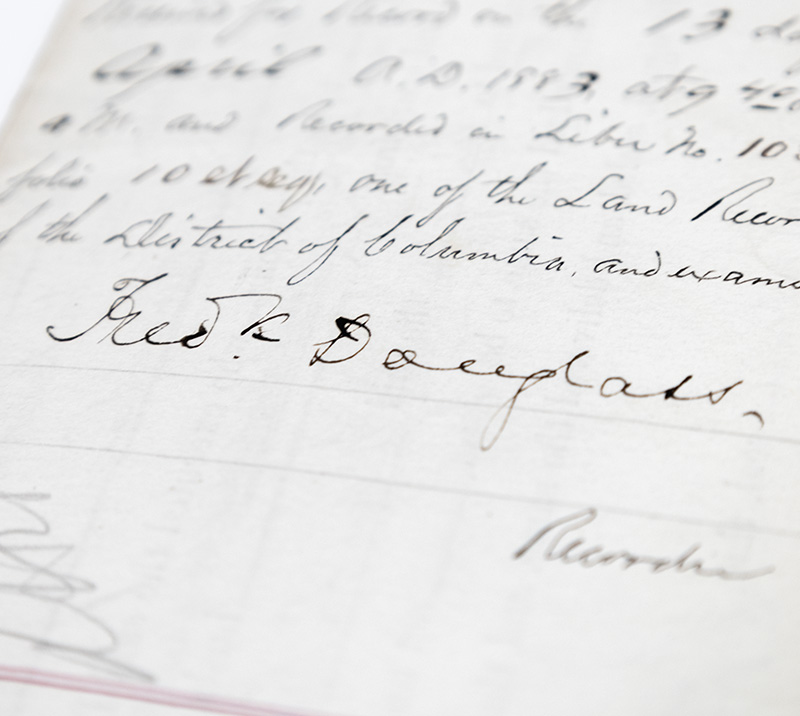 Received for Record on the 13 da
April A.D. 1883, at 9 40
M. and Recorded in Liber No. 10
folio 10 et seq, one of the Land Recor
f the District of Columbia, and exam
Fredk Douglass,
Recorder